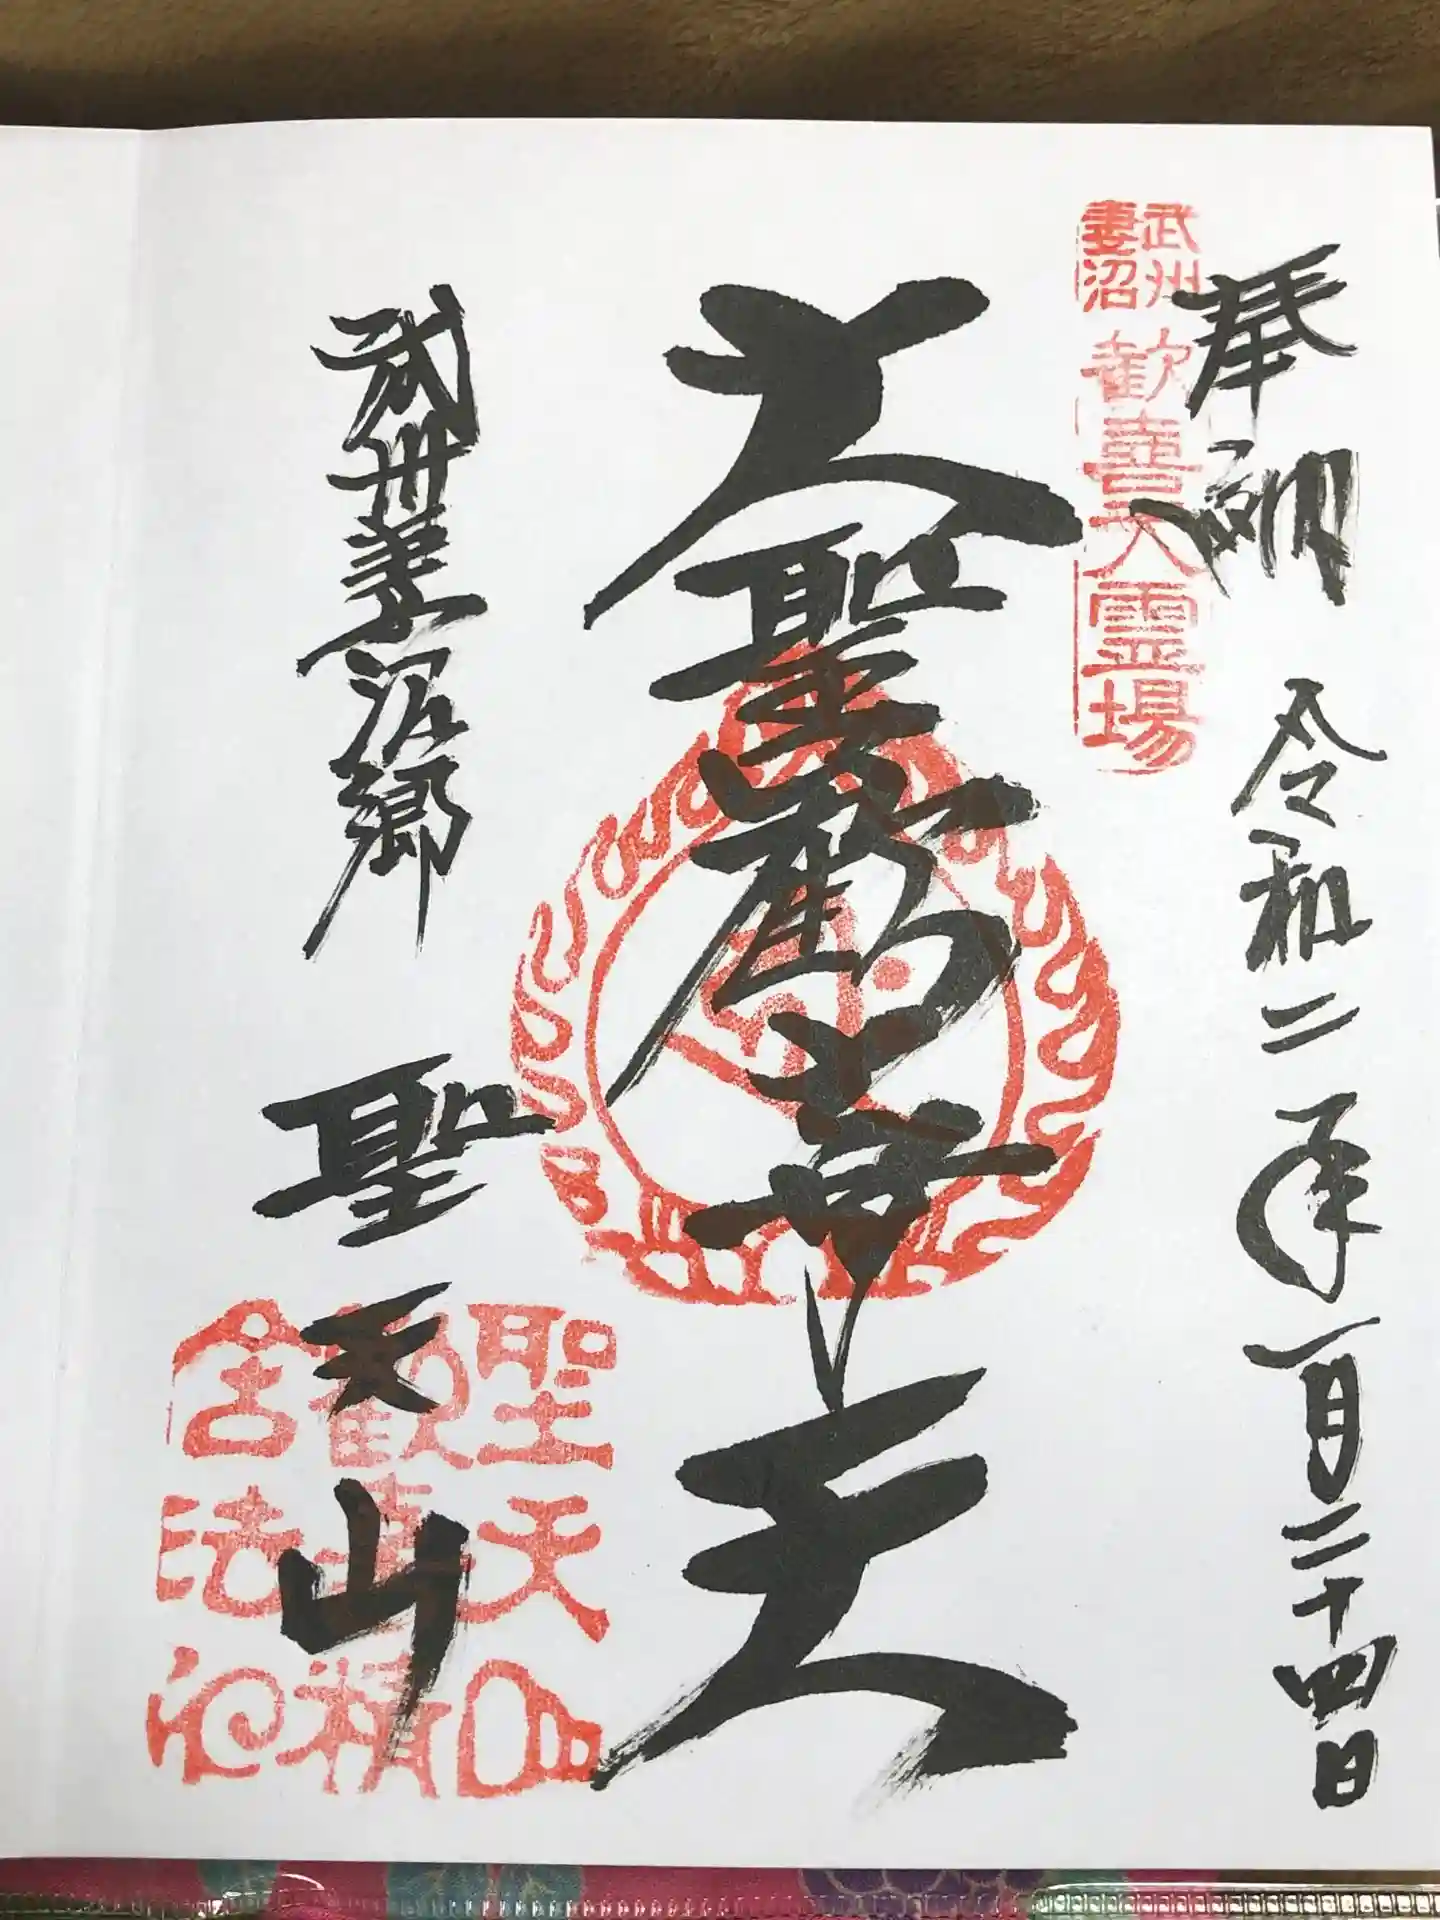 奉納 令和二年一月二十四日
武州
妻沼
歓喜天霊場
大聖歓喜天
武州妻沼郷 聖天山
聖天山
歓喜精
舎法印